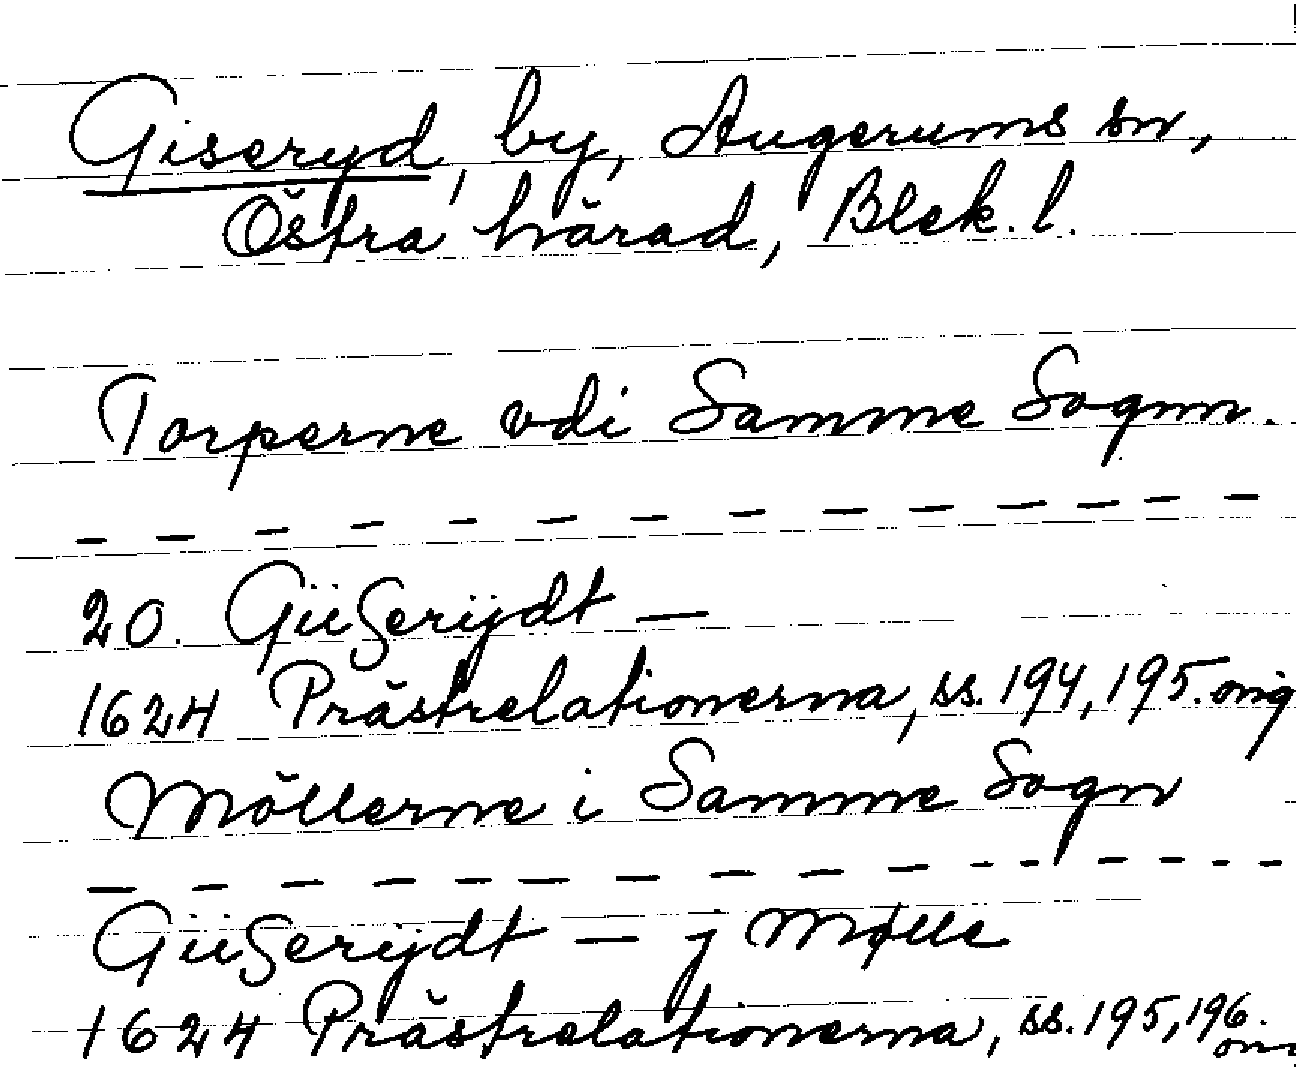 Giseryd, by, Augerums sn,
Östra härad, Blek. l.
Torperne vdi Samme Sognn.
20. Güßerÿdt —
1624 Prästrelationerna, ss. 194, 195. orig
Möllerne i Samme Sogn
Güßerÿdt — j Mølle
1624 Prästrelationerna, ss. 195, 196.